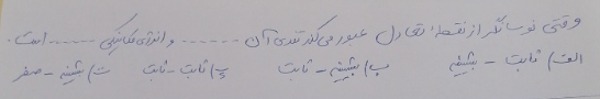 وقتی نوسانگر از نقطهٔ تعادل عبور می‌کند تندی آن ....... و انرژی مکانیکی ....... است.
الف) ثابت - بیشینه ب) بیشینه - ثابت پ) ثابت - ثابت ت) بیشینه - صفر